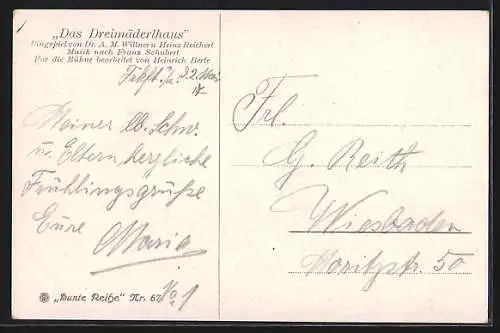 „Das Dreimäderlhaus"
Singspiel von Dr. A. M. Willner u. Heinz Reichert
Musik nach Franz Schubert
Für die Bühne bearbeitet von Heinrich Berte
Frkft. a/M. 2. Mai
17
Meiner lb. Schw.
u. Eltern herzliche
Frühlingsgrüße
Eure
Maria
„Bunte Reihe" Nr. 67
No. 1
Frl.
G. Reith
Wiesbaden
Moritzstr. 50